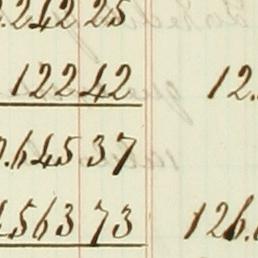 .242 25
12242 12.
.645 37
4563 73 126.